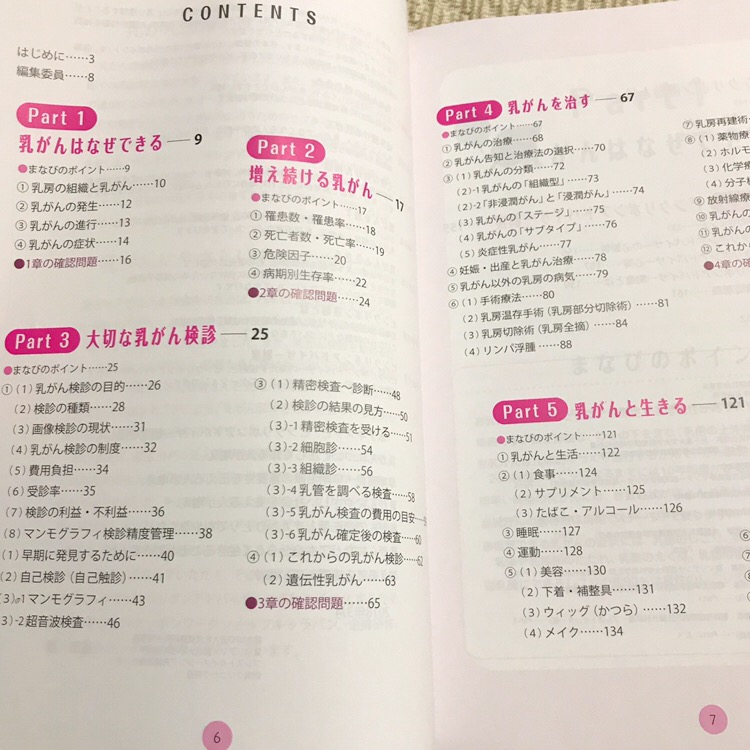 CONTENTS
はじめに……3
編集委員……8
Part 1
乳がんはなぜできる──9
●まなびのポイント……9
①乳房の組織と乳がん……10
②乳がんの発生……12
③乳がんの進行……13
④乳がんの症状……14
●1章の確認問題……16
Part 2
増え続ける乳がん──17
●まなびのポイント……17
①罹患数・罹患率……18
②死亡者数・死亡率……19
③危険因子……20
④病期別生存率……22
●2章の確認問題……24
Part 3 大切な乳がん検診──25
●まなびのポイント……25
①(1)乳がん検診の目的……26
(2)検診の種類……28
(3)画像検診の現状……31
(4)乳がん検診の制度……32
(5)費用負担……34
(6)受診率……35
(7)検診の利益・不利益……36
(8)マンモグラフィ検診精度管理……38
(1)早期に発見するために……40
(2)自己検診(自己触診)……41
(3)-1マンモグラフィ……43
(3)-2超音波検査……46
③(1)精密検査〜診断……48
(2)検診の結果の見方……50
(3)-1精密検査を受ける……51
(3)-2細胞診……54
(3)-3組織診……56
(3)-4乳管を調べる検査……58
(3)-5乳がん検査の費用の目安…
(3)-6乳がん確定後の検査……60
④(1)これからの乳がん検診……62
(2)遺伝性乳がん……63
●3章の確認問題……65
6
Part 4 乳がんを治す──67
●まなびのポイント……67
①乳がんの治療……68
②乳がん告知と治療法の選択……70
③(1)乳がんの分類……72
(2)-1乳がんの「組織型」……73
(2)-2「非浸潤がん」と「浸潤がん」……74
(3)乳がんの「ステージ」……75
(4)乳がんの「サブタイプ」……76
(5)炎症性乳がん……77
④妊娠・出産と乳がん治療……78
⑤乳がん以外の乳房の病気……79
⑥(1)手術療法……80
(2)乳房温存手術(乳房部分切除術)……81
(3)乳房切除術(乳房全摘)……84
(4)リンパ浮腫……88
⑦乳房再建術
⑧(1)薬物療
(2)ホルモ
(3)化学療
(4)分子標
⑨放射線療
⑩乳がんの
⑪乳がんの
⑫これから
●4章の確
Part 5 乳がんと生きる──121
●まなびのポイント……121
①乳がんと生活……122
②(1)食事……124
(2)サプリメント……125
(3)たばこ・アルコール……126
③睡眠……127
④運動……128
⑤(1)美容……130
(2)下着・補整具……131
(3)ウィッグ(かつら)……132
(4)メイク……134
7